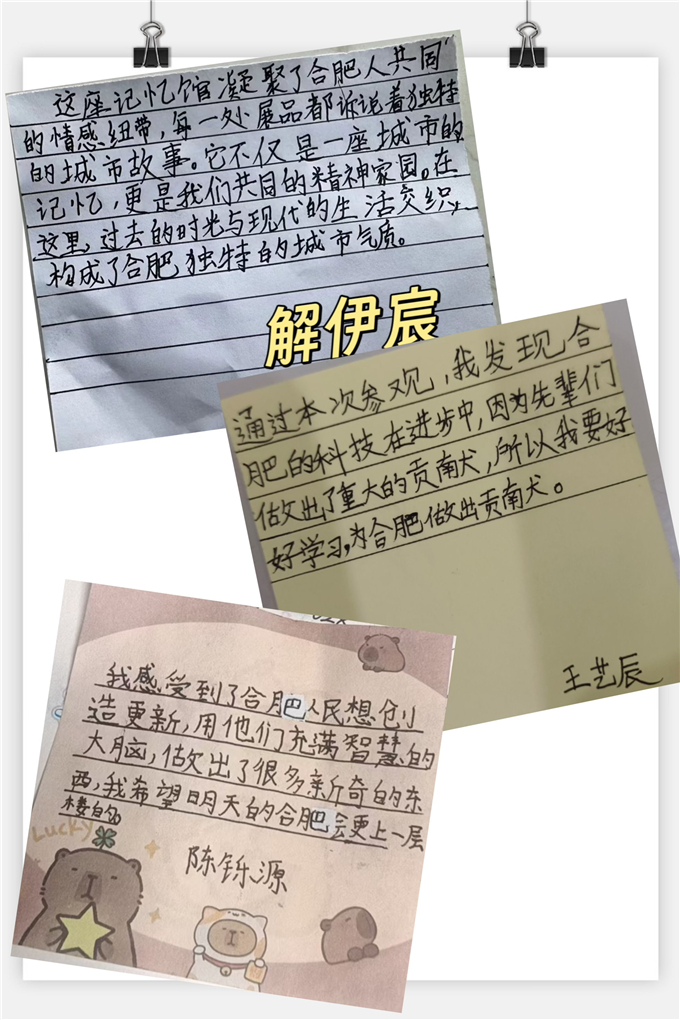 这座记忆馆凝聚了合肥人共同
的情感纽带，每一处展品都诉说着独特
的城市故事。它不仅是一座城市的
记忆，更是我们共同的精神家园。在
这里，过去的时光与现代的生活交织，
构成了合肥独特的城市气质。
解伊宸
通过本次参观，我发现合
肥的科技在进步中，因为先辈们
做出了重大的贡献，所以我要好
好学习，为合肥做出贡献。
王艺辰
我感受到了合肥人民想创
造更新，用他们充满智慧的
大脑，做出了很多新奇的东
西，我希望明天的合肥会更上一层
楼的。
Lucky
陈铄源